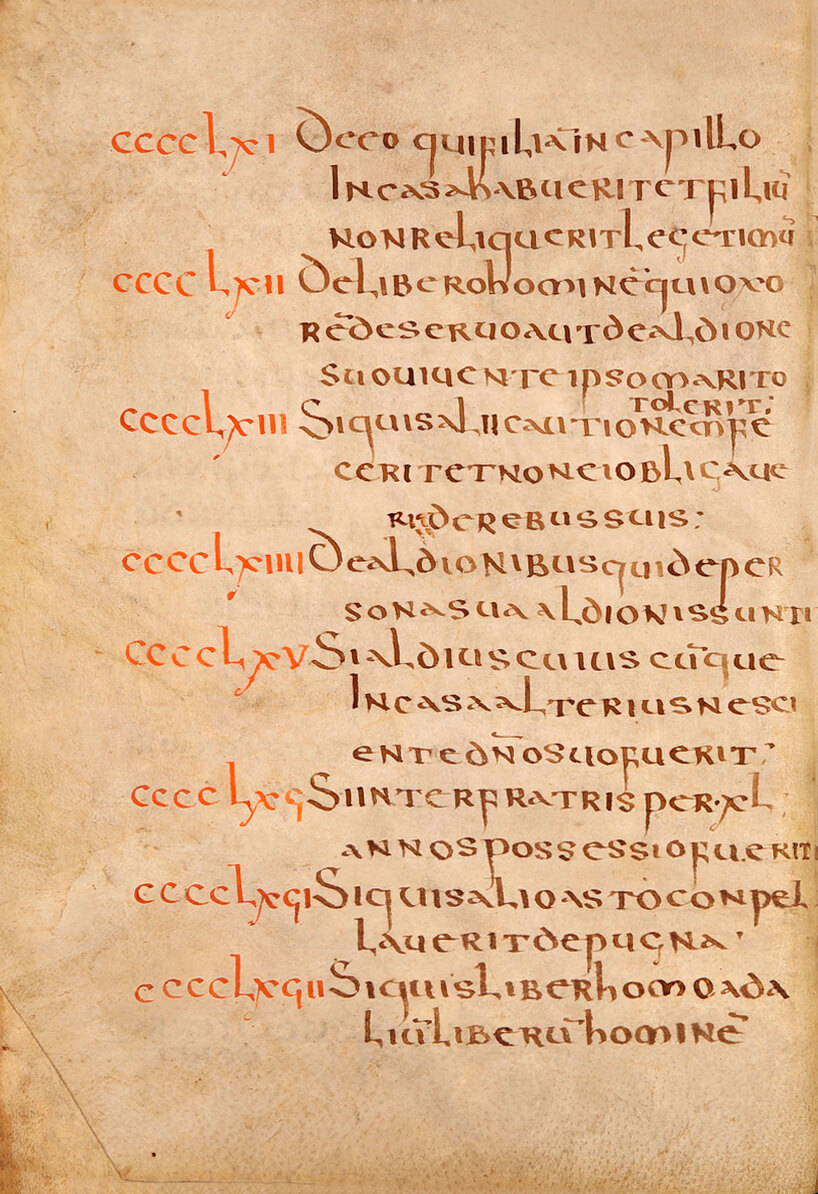 ccccLxi Deeo qui filiā in capillo
In casa habuerit et filiū
non reliquerit legetimū
ccccLxii De libero hominē qui uxo
rē de seruo aut de aldione
suo uiuente ipso marito
tolerit;
ccccLxiii Si quis alii cautionem fe
cerit et non ei obligaue
rit de rebus suis:
ccccLxiiii De aldionibus qui de per
sona sua aldionis sunt
ccccLxv Si aldius cuius cūque
In casa alterius nesci
ente dn̄o suo fuerit;
ccccLxϛ Si inter fratris per·xL
annos possessio fuerit
ccccLxϛi Si quis alio asto conpel
lauerit de pugna
ccccLxϛii Si quis liber homo ad a
liū liberū hominē